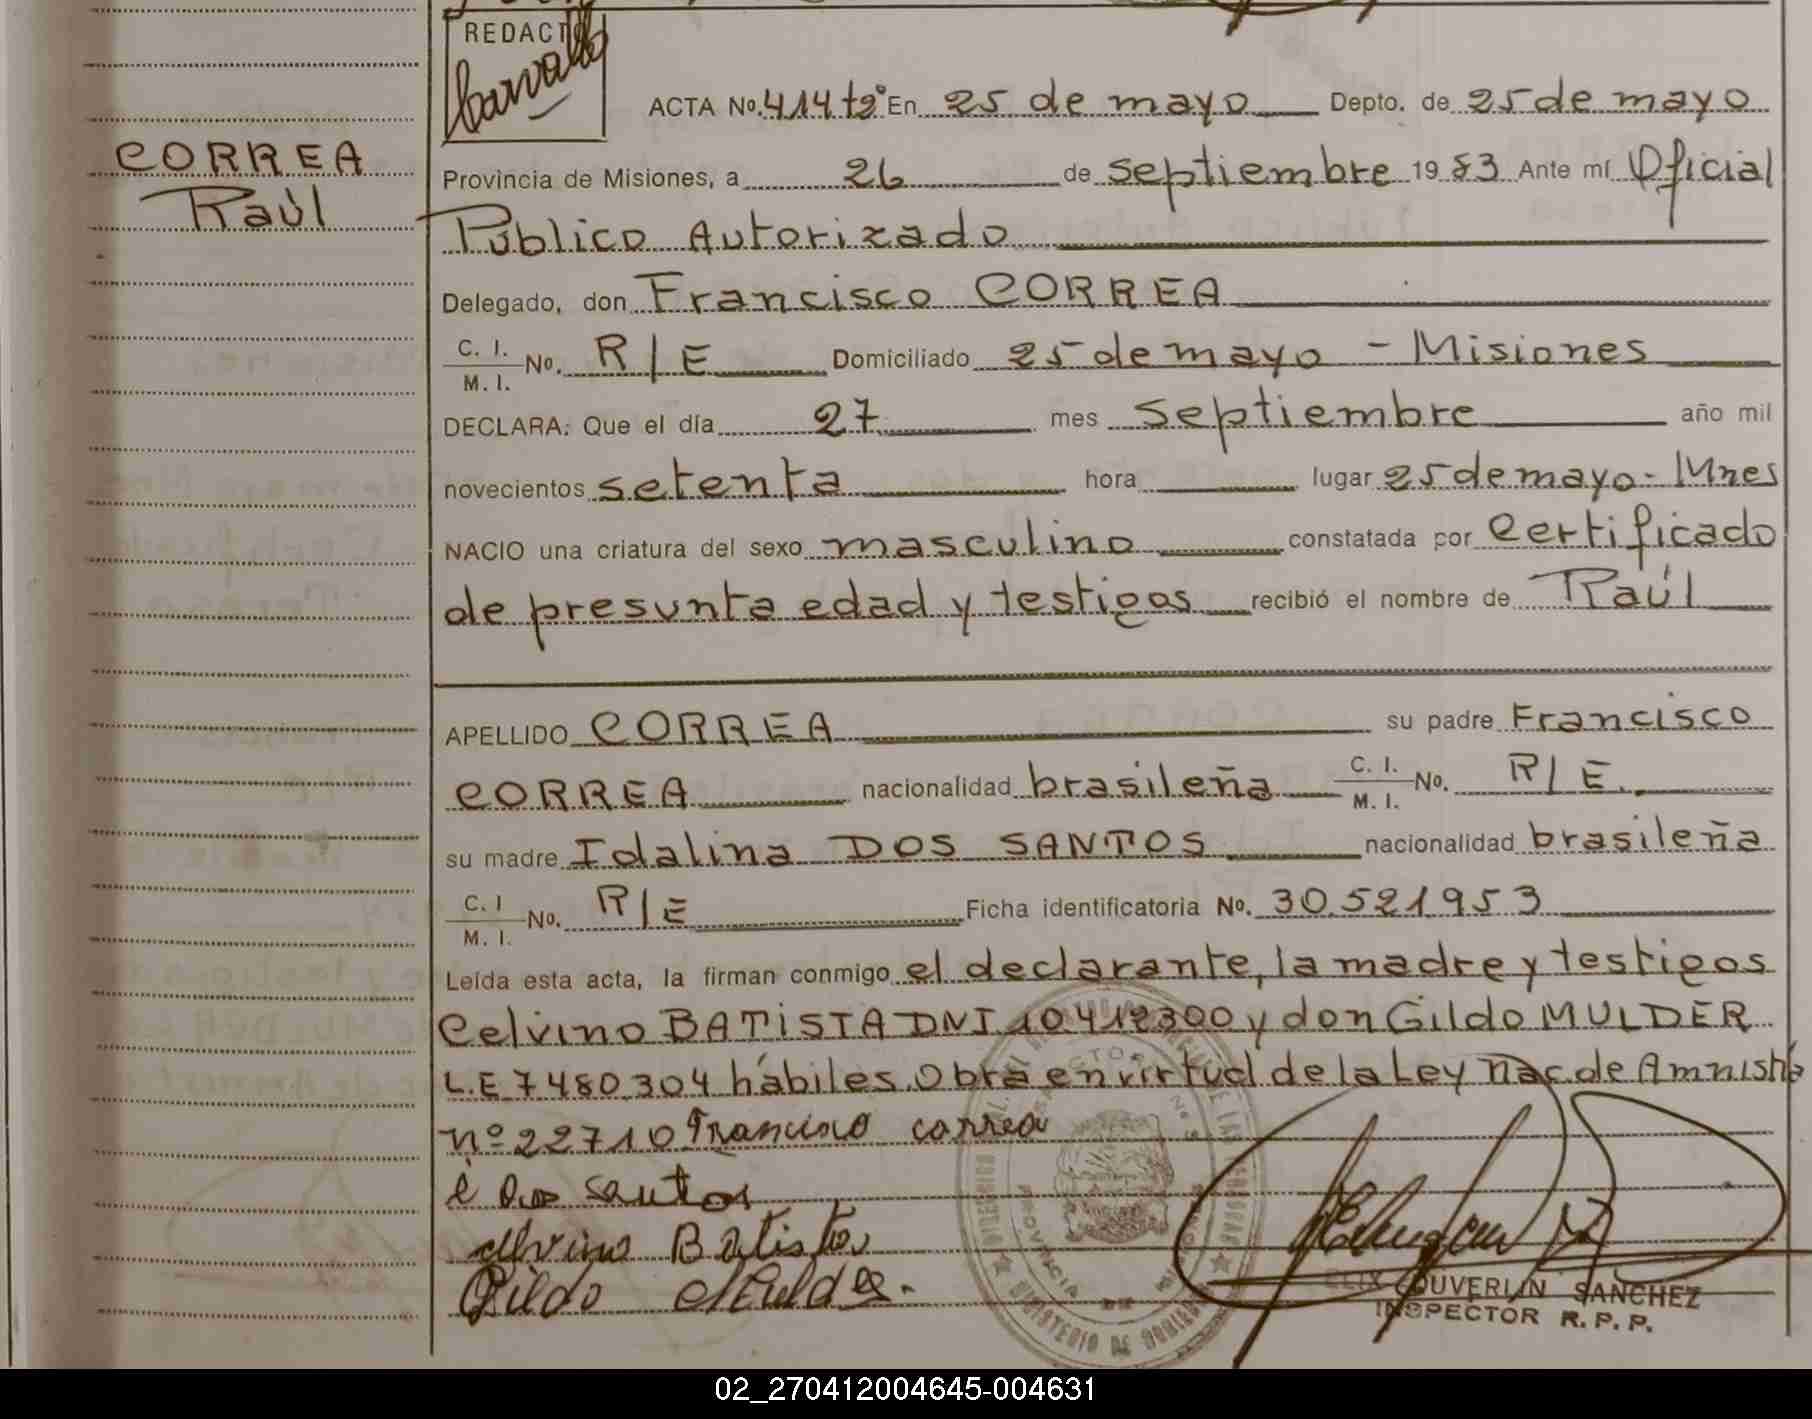 REDACTO
Carvallo
ACTA No. 414 tº2 En 25 de mayo Depto. de 25 de mayo
CORREA
Raúl
Provincia de Misiones, a 26 de septiembre 1983 Ante mí Oficial
Público Autorizado
Delegado, don Francisco CORREA
C. I. / M. I. No. R/E Domiciliado 25 de mayo - Misiones
DECLARA: Que el día 27 mes septiembre año mil
novecientos setenta hora lugar 25 de mayo - Mnes
NACIO una criatura del sexo masculino constatada por certificado
de presunta edad y testigos recibió el nombre de Raúl
APELLIDO CORREA su padre Francisco
CORREA nacionalidad brasileña C. I. / M. I. No. R/E.
su madre Idalina DOS SANTOS nacionalidad brasileña
C. I / M. I. No. R/E Ficha identificatoria No. 30.521.953
Leída esta acta, la firman conmigo el declarante, la madre y testigos
Celvino BATISTA DNI 10.412300 y don Gildo MULDER
L.E 7480.304 hábiles. Obra en virtud de la Ley nac de Amnistía
nº 22710 Francisco correa
dos santos
Batista
Gildo Mulder.
LOUVERLIN SANCHEZ
INSPECTOR R. P. P.
PROVINCIA DE
MINISTERIO DE GOBIERNO
02_270412004645-004631